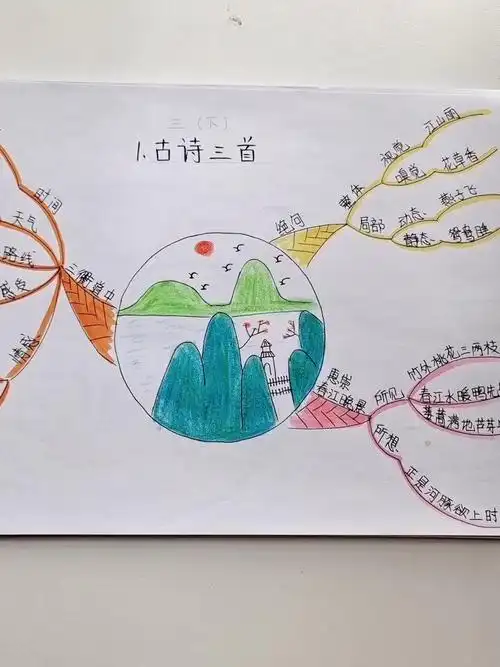 三（下）
1.古诗三首
绝句
整体
视觉
江山丽
嗅觉
花草香
局部
动态
燕子飞
静态
鸳鸯睡
惠崇
春江晚景
所见
竹外桃花三两枝
春江水暖鸭先
蒌蒿满地芦芽
所想
正是河豚欲上时
三衢道中
时间
天气
路线
感觉